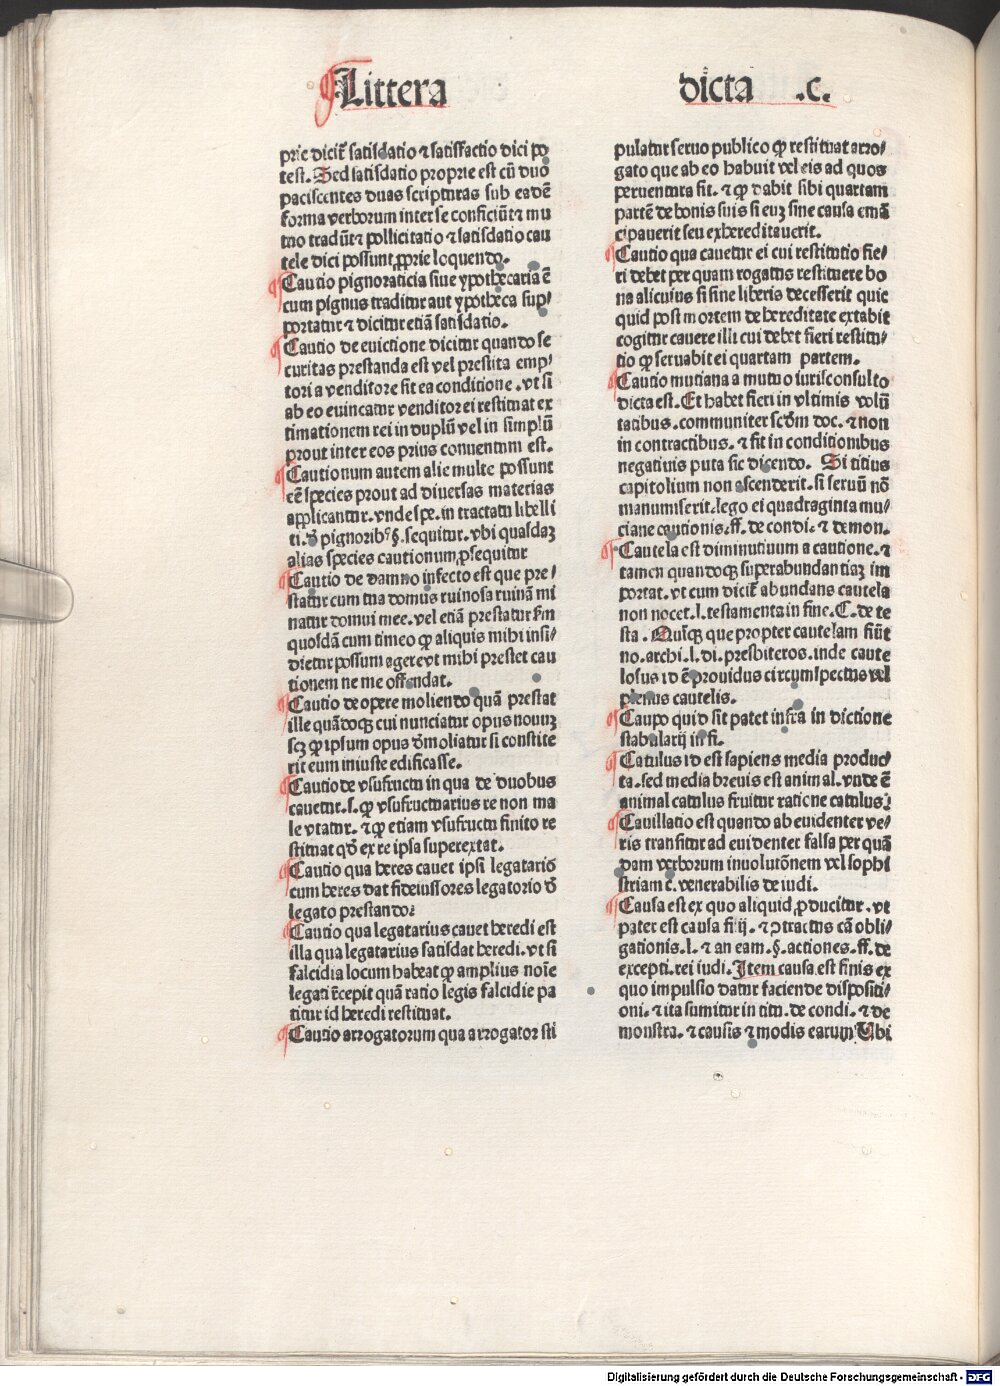 Littera dicta .c.
prie dicit̄ satisdatio ⁊ satisfactio dici po
test. Sed satisdatio proprie est cū duo
paciscentes duas scripturas sub eadē
forma verborum inter se conficiūt ⁊ mu
tuo tradūt ⁊ pollicitatio ⁊ satisdatio cau
tele dici possunt ꝓprie loquendo.
Cautio pignoraticia siue ypothecaria ē
cum pignus traditur aut ypotheca sup⸗
portatur ⁊ dicitur etiā satisdatio.
Cautio de euictione dicitur quando se
curitas prestanda est vel prestita emp⸗
tori a venditore sit ea conditione. vt si
ab eo euincatur venditor ei restituat ex
timationem rei in duplū vel in simplū
prout inter eos prius conuentum est.
Cautionum autem alie multe possunt
eē species prout ad diuersas materias
applicantur. vnde spe. in tractatu libelli
ti. d̄ pignorib⁹ §. sequitur. vbi quasdaꝫ
alias species cautionum ꝓsequitur
Cautio de damno infecto est que pre⸗
statur cum tua domus ruinosa ruinā mi
natur domui mee. vel etiā prestatur s̄m
quosdā cum timeo ꝙ aliquis mihi insi⸗
dietur possum agere vt mihi prestet cau
tionem ne me offendat.
Cautio de opere moliendo quā prestat
ille quādoqꝫ cui nunciatur opus nouuꝫ
scꝫ ꝙ ipsum opus d̄moliatur si constite
rit eum iniuste edificasse.
Cautio de vsufructu in qua de duobus
cauetur. s. ꝙ vsufructuarius re non ma
le vtatur. ⁊ ꝙ etiam vsufructu finito re
stituat qd̄ ex re ipsa superextat.
Cautio qua heres cauet ipsi legatario
cum heres dat fideiussores legatorio d̄
legato prestando:
Cautio qua legatarius cauet heredi est
illa qua legatarius satisdat heredi. vt si
falcidia locum habeat ꝙ amplius noīe
legati r̄cepit quā ratio legis falcidie pa
titur id heredi restituat.
Cautio arrogatorum qua arrogator sti
pulatur seruo publico ꝙ restituat arro⸗
gato que ab eo habuit vel eis ad quos
peruentura sit. ⁊ ꝙ dabit sibi quartam
partē de bonis suis si euꝫ sine causa emā
cipauerit seu exhereditauerit.
Cautio qua cauetur ei cui restitutio fie⸗
ri debet per quam rogatus restituere bo
na alicuius si sine liberis decesserit quic
quid post mortem de hereditate extabit
cogitur cauere illi cui debet fieri restitu⸗
tio ꝙ seruabit ei quartam partem.
Cautio mutiana a mutuo iurisconsulto
dicta est. Et habet fieri in vltimis volū
tatibus. communiter scd̄m doc. ⁊ non
in contractibus. ⁊ fit in conditionibus
negatiuis puta sic dicendo. Si titius
capitolium non ascenderit. si seruū nō
manumiserit. lego ei quadraginta mu⸗
ciane cautionis. ff. de condi. ⁊ demon.
Cautela est diminutiuum a cautione. ⁊
tamen quandoqꝫ superabundantiaꝫ im
portat. vt cum dicit̄ abundans cautela
non nocet. l. testamenta in fine. C. de te
sta. Autēqꝫ que propter cautelam fiūt
no. archi. l. di. presbiteros. inde caute
losus id ē prouidus circumspectus vel
plenus cautelis.
Caupo quid sit patet infra in dictione
stabularij in fi.
Catulus id est sapiens media produc⸗
ta. sed media breuis est animal. vnde ē
animal catulus fruitur ratione catulus:
Cauillatio est quando ab euidenter ve⸗
ris transitur ad euidenter falsa per quā
dam verborum inuolutōnem vel sophi
striam c. venerabilis de iudi.
Causa est ex quo aliquid ꝓducitur. vt
pater est causa filij. ⁊ ꝯtractus cā obli⸗
gationis. l. ⁊ an eam. §. actiones. ff. de
excepti. rei iudi. Item causa est finis ex
quo impulsio datur faciende dispositi⸗
oni. ⁊ ita sumitur in titu. de condi. ⁊ de
monstra. ⁊ causis ⁊ modis earum Vbi
Digitalisierung gefördert durch die Deutsche Forschungsgemeinschaft - DFG